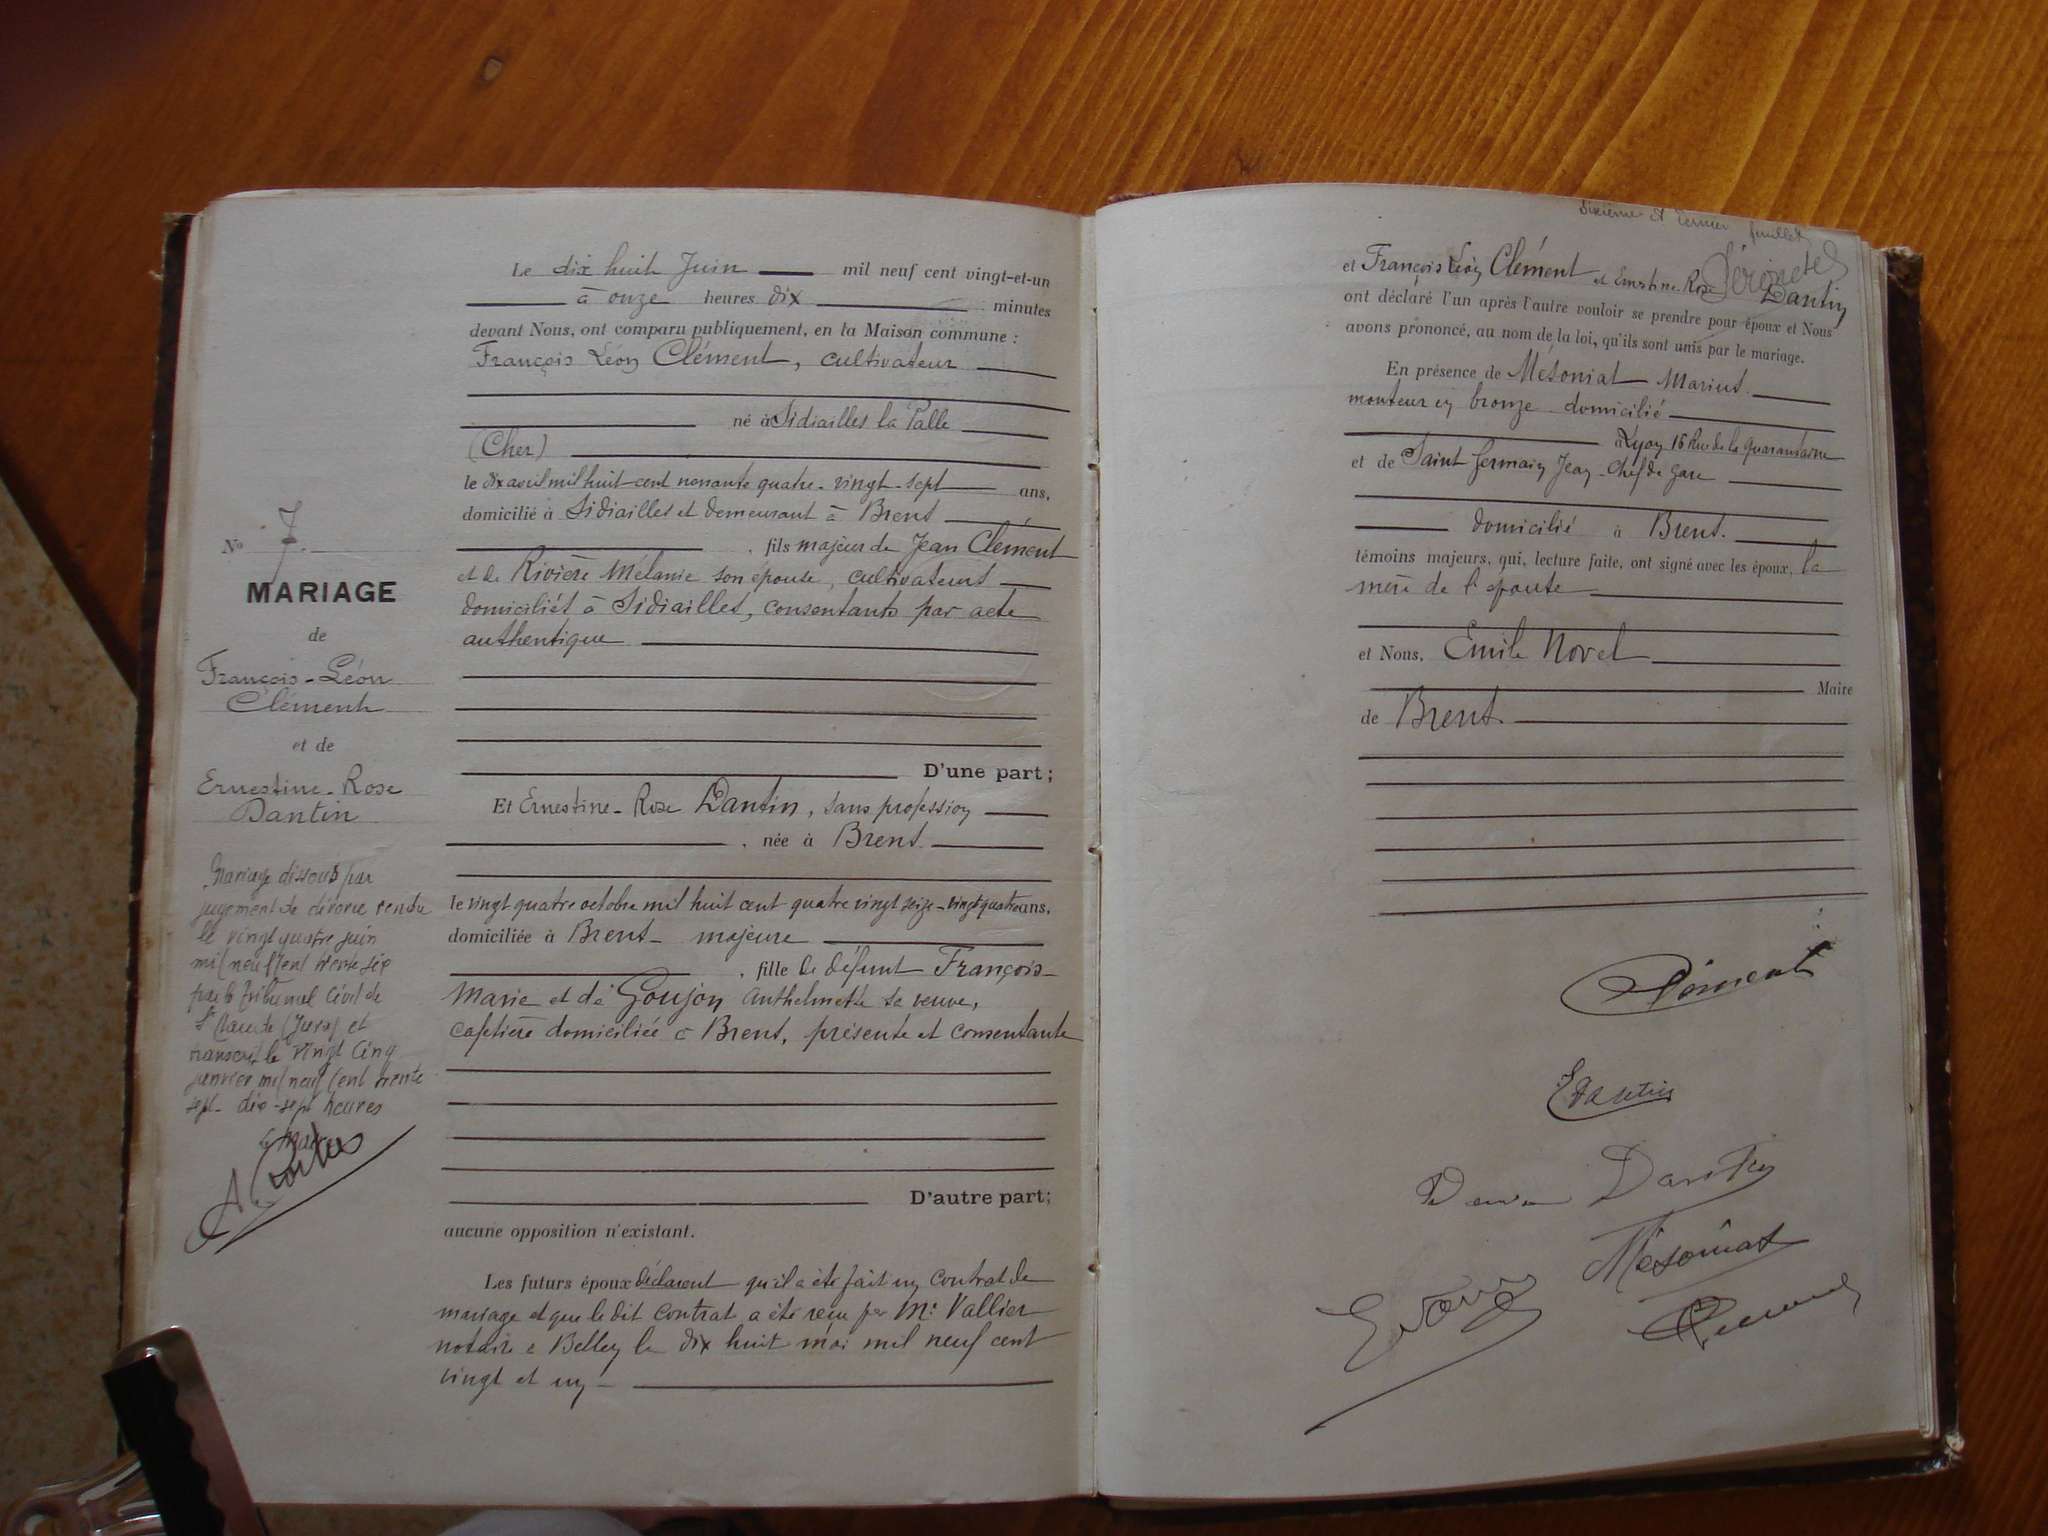 Le dix huit Juin mil neuf cent vingt-et-un
à onze heures dix minutes
devant Nous, ont comparu publiquement, en la Maison commune :
François Léon Clément, cultivateur
né à Sidiailles la Palle
(Cher)
le dix avril mil huit cent nonante quatre - vingt-sept ans,
domicilié à Sidiailles et demeurant à Brens
, fils majeur de Jean Clément
et de Rivière Mélanie son épouse, cultivateurs
domiciliés à Sidiailles, consentants par acte
authentique
D'une part ;
Et Ernestine-Rose Dantin, sans profession
, née à Brens
le vingt quatre octobre mil huit cent quatre vingt seize - vingt quatre ans,
domiciliée à Brens - majeure
, fille de défunt François-
Marie et de Goujon Anthelmette sa veuve,
cafetière domiciliée à Brens, présente et consentante
D'autre part ;
aucune opposition n'existant.
Les futurs époux déclarent qu'il a été fait un contrat de
mariage et que le dit contrat a été reçu par Me Vallier
notaire à Belley le dix huit mai mil neuf cent
vingt et un
No 7.
MARIAGE
de
François-Léon
Clément
et de
Ernestine-Rose
Dantin
Mariage dissous par
jugement de divorce rendu
le vingt quatre juin
mil neuf cent trente six
par le tribunal Civil de
St Claude (Jura) et
transcrit le vingt cinq
janvier mil neuf cent trente
sept - dix-sept heures
Le Maire
Sixième et dernier feuillet
et François Léon Clément et Ernestine Rose Dantin
ont déclaré l'un après l'autre vouloir se prendre pour époux et Nous
avons prononcé, au nom de la loi, qu'ils sont unis par le mariage.
En présence de Mésoniat Marius
monteur en bronze domicilié
à Lyon 16 Rue de la Quarantaine
et de Saint Germain Jean - Chef de gare
domicilié à Brens.
témoins majeurs, qui, lecture faite, ont signé avec les époux, la
mère de l'épouse
et Nous, Emile Novel
Maire
de Brens.
Clément
E Dantin
Veuve Dantin
Mésoniat